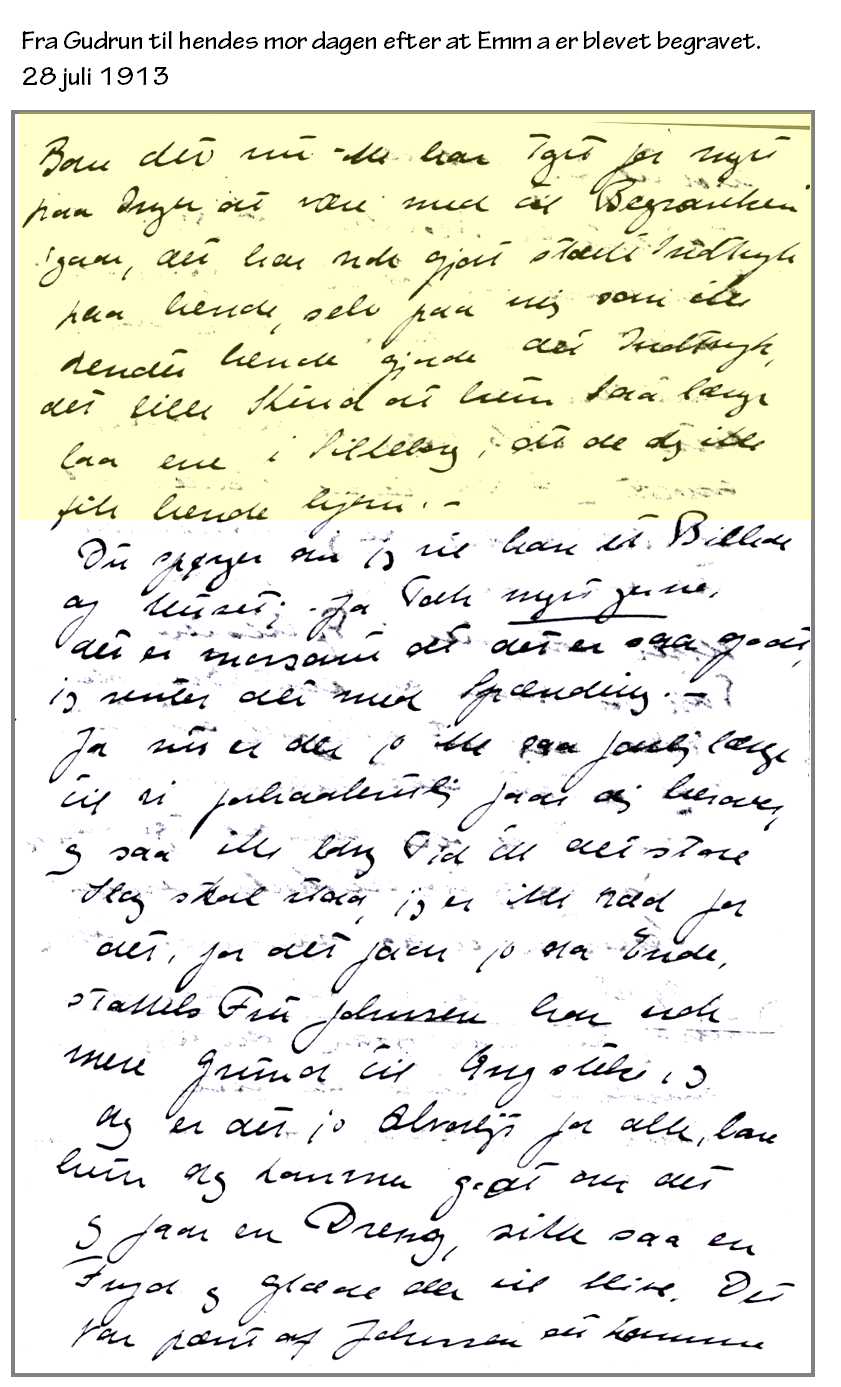 Fra Gudrun til hendes mor dagen efter at Emma er blevet begravet.
28 juli 1913
Bare det nu ikke har taget for meget
paa Inger at være med til Begravelsen
igaar, det har nok gjort stærkt Indtryk
paa hende, selv paa mig som ikke
kendte hende gjorde det Indtryk,
det lille Skind at hun saa længe
laa ene i Silkeborg, at de dog ikke
fik hende hjem. –
Du spørger om jeg vil have et Billede
af Huset; Ja Tak meget gerne,
det er morsomt at det er saa godt,
jeg venter det med Spænding. –
Ja nu er der jo ikke saa farlig længe
til vi forhaabentlig faar dig herover,
og saa ikke lang Tid til det store
Slag skal staa, jeg er ikke ræd for
det, for det faar jo da Ende,
stakkels Fru Johnsen har nok
mere Grund til Ængstelse, og
dog er det jo Alvorligt for alle, bare
hun dog kommer godt over det
og faar en Dreng, sikke saa en
Fryd og Glæde der vil blive. Det
var pænt af Johnsen at komme